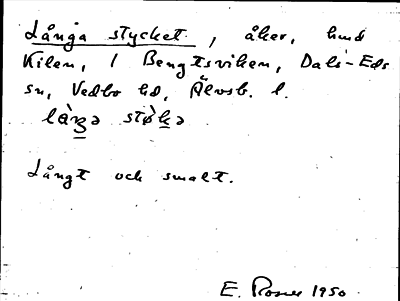 Långa stycket, åker, hmd
Kilen, 1 Bengtsviken, Dals-Eds
sn, Vedbo hd, Älvsb. l.
Långt och smalt.
E. Rosen 1950